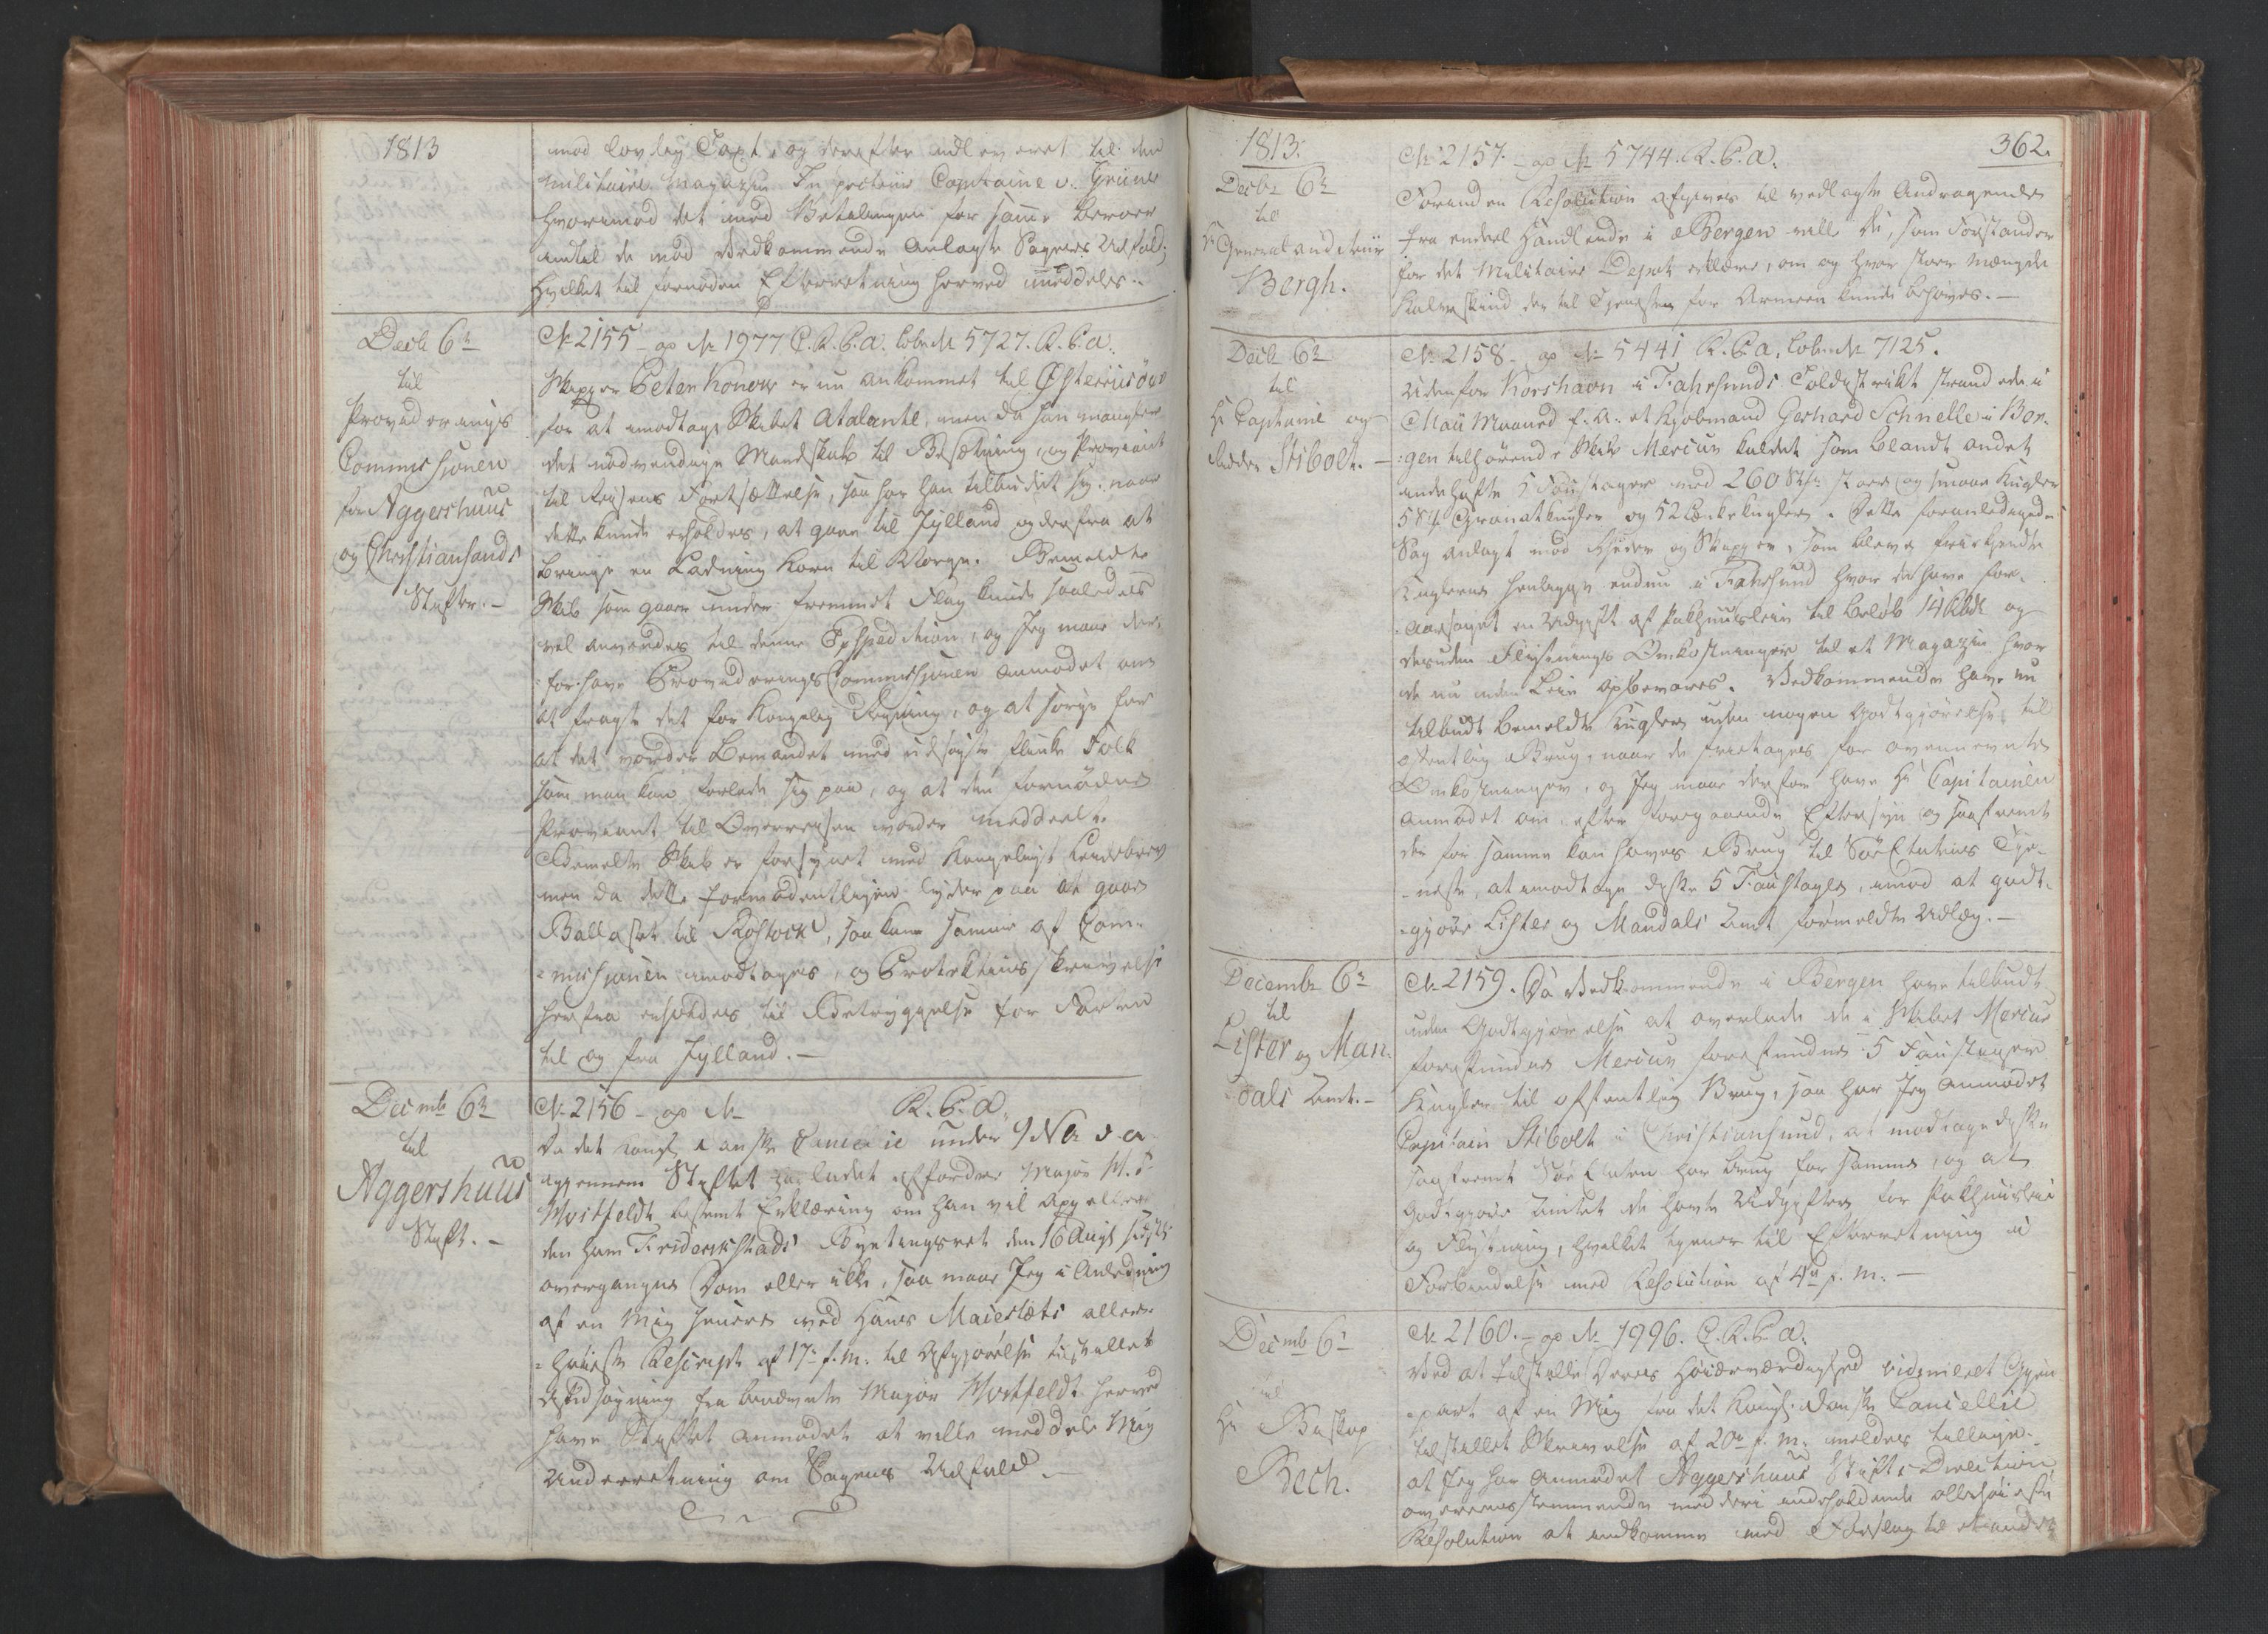 1813
mod lovlig Taxt, og derefter udleveret til den
militaire Magazin Inspecteur Capitaine v. Grüner
hvorimod det med Betalingen for samme beroer
indtil de mod Vedkommende anlagte Sagers Udfald;
hvilket til fornøden Efterretning herved meddeles.-
Decbr 6te
til
Provideringes
Commissionen
for Aggershuus
og Christiansands
Stifter.-
No 2155 - op No 1977 C. R. C. a. lob. No 5727. R. C. a.
Skipper Peter Konow er nu ankommet til Østeriisöer
for at imodtage Skibet Atalante, men da han mangler
det nødvendige Mandskab til Besætning, og Proviant
til Reisens Fortsættelse, saa har han tilbudet sig, naar
dette kunde erholdes, at gaae til Jylland og derfra at
bringe en Ladning Korn til Norge. Bemeldte
Skib som gaaer under fremmet Flag kunde saaledes
vel anvendes til denne Expedition, og Jeg maae der-
for have Provideringes Commissionen anmodet om
at fragte det for Kongelig Regning, og at sørge for
at det vorder bemandet med udsøgte flinke Folk
som man kan forlade sig paa, og at den fornødne
Proviant til Overreisen vorder meddeelt.
Bemeldte Skib er forsynet med Kongeligt Leidebrev
men da dette formodentligen lyder paa at gaae
Ballastet til Rostock, saa kan samme af Com-
missionen imodtages, og Protektions skrivelse
herfra erholdes til Betryggelse for Farten
til og fra Jylland.-
Decmb 6te
til
Aggershuus
Stift.-
No 2156 - op No R. C. a.
Da det kongl. danske Cancelie under 9 Nov. d. a.
igjennem Stiftet har ladet affordre Major W. F.
Mostfeldt bestemt Erklæring om han vil appellere
den ham Frideriksstads Byetingsret den 16 Augt sidstl.
overgangne Dom eller ikke, saa maae Jeg i Anledning
af en Mig hertil med Hans Majestæts aller-
høieste Rescript af 17de f. M. til Afgjørelse tilstillet
Ansøgning fra bemeldte Major Mostfeldt herved
have Stiftet anmodet at ville meddele Mig
Underretning om Sagens Udfald.-
1813.
362.
Decbr 6te
til
Hr Generalauditeur
Bergh.
No 2157. - op No 5744. R. C. a.
Forinden Resolution afgives til vedlagte Andragende
fra endeel Handlende i Bergen ville De, som Forstander
for det Militaire Depot erklære, om og hvor stor Mængde
Kalveskind der til Tjenesten for Armeen kunde behøves.-
Decbr 6te
til
Hr Captaine og
Ridder Stibolt.-
No 2158 - op No 5441 R. C. a. lob. No 7125.
Udenfor Korshavn i Fahrsunds Tolddistrikt strandede i
Maii Maaned f. A. et Kjøbmand Gerhard Schnelle i Ber-
gen tilhørende Skib Mercur kaldet som blandt andet
indeholdte 5 Foustager med 260 Stk. store og smaae Kugler
584 Granatkugler og 52 Lænkekugler. Dette foranledigede
Sag anlagt mod Rhederen og Skipper, som bleve frikjendte
Kuglerne henligge endnu i Fahrsund hvor de have for-
aarsaget en Udgift af Pakhuusleie til beløb 14 Rbd og
desuden Flytnings Omkostninger til et Magazin hvor
de nu uden Leie opbevares. Vedkommende have nu
tilbudt bemeldte Kugler uden nogen Godtgjørelse til
offentlig Brug, naar de fritages for ovennevnte
Omkostninger, og Jeg maae derfor have Hr Capitainen
anmodet om, efter foregaaende Eftersyn og saafremt
der for samme kan haves Brug til Søe Etatens Tje-
neste, at imodtage disse 5 Foustager, imod at godt-
gjøre Lister og Mandals Amt formeldte Udlæg.-
Decembr 6te
til
Lister og Man-
dals Amt.-
No 2159. Da Vedkommende i Bergen have tilbudt
uden Godtgjørelse at overlade de i Skibet Mercur
forefundne Mercur forefundne 5 Foustager
Kugler til offentlig Brug, saa har Jeg anmodet
Capitain Stibolt i Christiansund, at modtage disse
saafremt Søe Etaten har Brug for samme, og at
godtgjøre Amtet de havte Udgifter for Pakhuusleie
og Flytning, hvilket tjener til Efterretning i
Forbindelse med Resolution af 4de f. M.-
Decmb 6te
til
Hr Biskop
Bech.
No 2160. - op No 1996. C. R. C. a.
Ved at tilstille Deres Høiærværdighed vidimeret Gjen-
part af en Mig fra det Kongl. danske Cancellie
tilstillet Skrivelse af 20de f. M. meldes tillige
at Jeg har anmodet Aggershuus Stifts Direction
overeensstemmende med deri indeholdende allerhøieste
Resolution at indkomme med Forslag til et andet